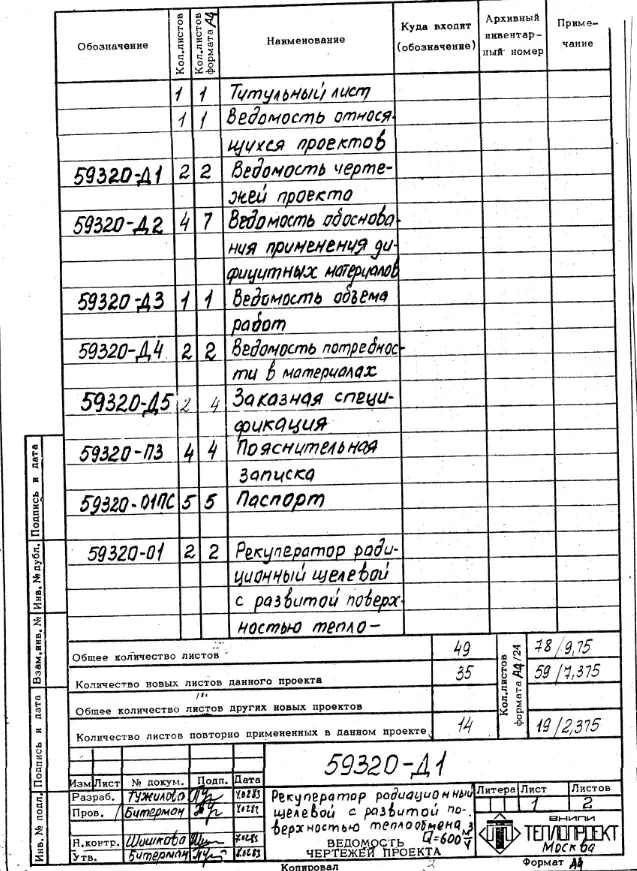 Обозначение Кол.листов Кол.листов формата А4 Наименование Куда входит (обозначение) Архивный инвентарный номер Примечание
1 1 Титульный лист
1 1 Ведомость относя-
щихся проектов
59320-Д1 2 2 Ведомость черте-
жей проекта
59320-Д2 4 7 Ведомость обоснова-
ния применения ди-
фицитных материалов
59320-Д3 1 1 Ведомость объема
работ
59320-Д4 2 2 Ведомость потребнос-
ти в материалах
59320-Д5 2 4 Заказная специ-
фикация
59320-ПЗ 4 4 Пояснительная
записка
59320-01ПС 5 5 Паспорт
59320-01 2 2 Рекуператор ради-
ционный щелевой
с развитой поверх-
ностью тепло-
Общее количество листов 49 Кол.листов формата А4/24 78/9,75
Количество новых листов данного проекта 35 59/7,375
Общее количество листов других новых проектов
Количество листов повторно примененных в данном проекте 14 19/2,375
59320-Д1
Изм Лист № докум. Подп. Дата
Разраб. Тужилова
Пров. Битерман
Н.контр. Шишкова
Утв. Битерман
Рекуператор радиационный
щелевой с развитой по-
верхностью теплообмена
Q=600
ВЕДОМОСТЬ
ЧЕРТЕЖЕЙ ПРОЕКТА
Литера Лист Листов
1 2
ВНИПИ
ТЕПЛОПРОЕКТ
Москва
Копировал Формат А4
Инв. № подл. Подпись и дата Взам.инв. № Инв. № дубл. Подпись и дата